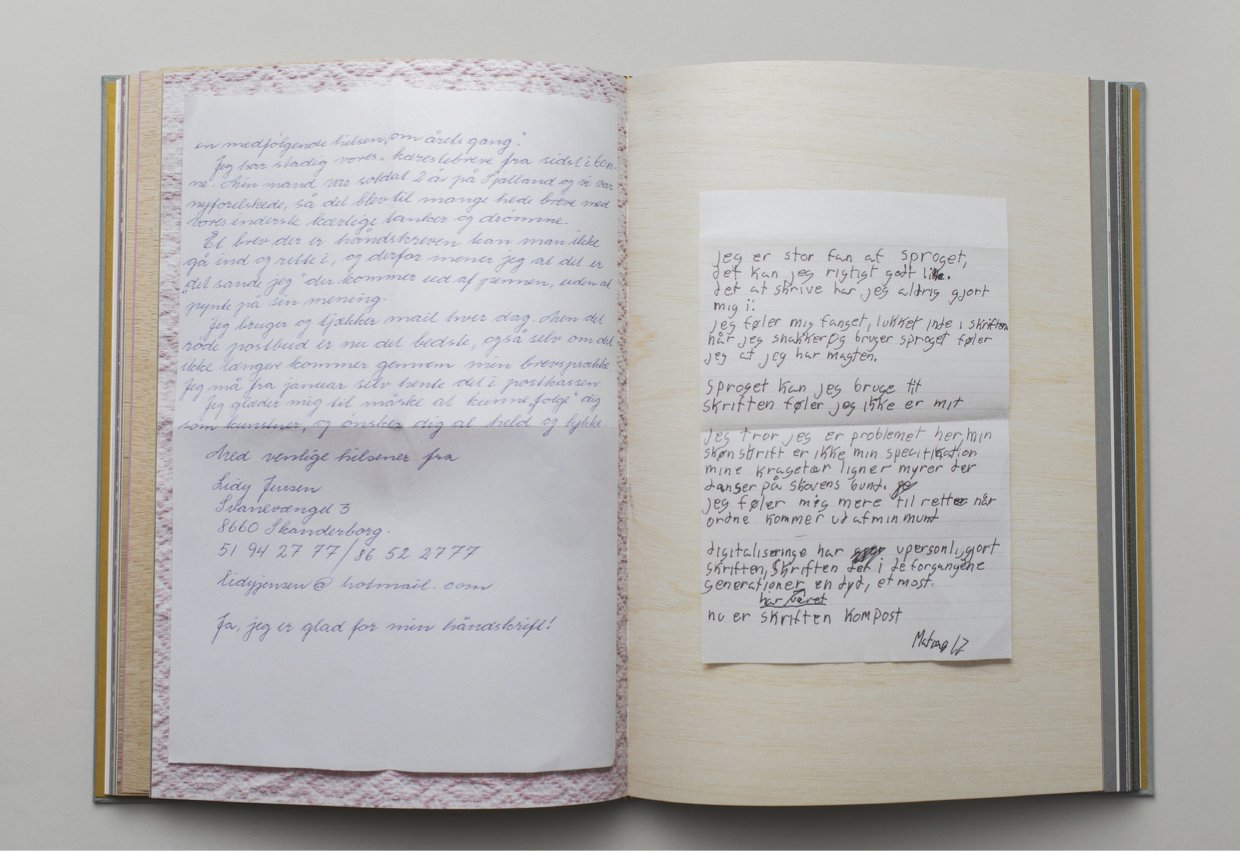 en medfølgende hilsen „om årets gang."
Jeg har stadig vores kærestebreve fra sidst i 60er-
ne. Min mand var soldat 2 år på Sjælland og vi var
nyforelskede, så det blev til mange hede breve med
vores inderste kærlige tanker og drømme.
Et brev der er håndskreven kan man ikke
gå ind og rette i, og derfor mener jeg at det er
"det sande jeg" der kommer ud af pennen, uden at
"pynte på sin mening.
Jeg bruger og tjækker mail hver dag. Men det
røde postbud er nu det bedste, også selv om det
ikke længere kommer gennem min brevsprække.
Jeg må fra januar selv hente det i postkassen.
Jeg glæder mig til måske at kunne „følge" dig
som kunstner, og ønsker dig al held og lykke.
Med venlige hilsener fra
Lidy Jensen
Svanevænget 3
8660 Skanderborg.
51 94 27 77 / 86 52 27 77
lidyjensen@hotmail.com
Ja, jeg er glad for min håndskrift!
jeg er stor fan af sproget,
det kan jeg rigtigt godt li.
det at skrive har jeg aldrig gjort
mig i.
jeg føler mig fanget, lukket inde i skriften
når jeg snakker og bruger sproget føler
jeg at jeg har magten.
sproget kan jeg bruge tit
skriften føler jeg ikke er mit
jeg tror jeg er problemet her, min
skønskrift er ikke min specifikation
mine kragetær ligner myrer der
danser på skovens bund.
jeg føler mig mere til rette når
ordne kommer ud af min mund
digitaliseringe har upersonligjort
skriften, skriften det i de forgangene
generationer en dyd, et most.
har været
nu er skriften kompost